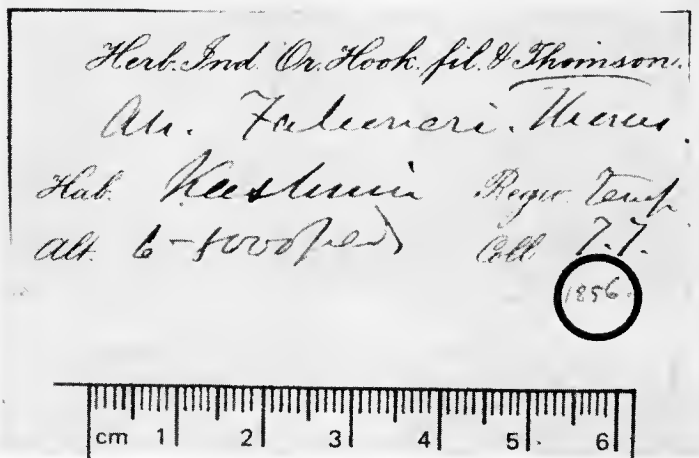 Herb. Ind. Or. Hook. fil. & Thomson.
Falconeri.
Hab. Kashmir Regio. Temp
Alt. 6-8000 ped Coll. T.T.
1856.
cm 1 2 3 4 5 6